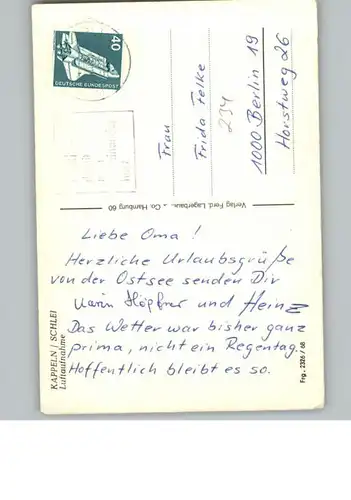 40
DEUTSCHE BUNDESPOST
Frau
Frida Felke
234
1000 Berlin 19
Horstweg 26
Verlag Ferd. Lagerbauer & Co. Hamburg 60
Liebe Oma!
Herzliche Urlaubsgrüße
von der Ostsee senden Dir
und Heinz
Das Wetter war bisher ganz
prima, nicht ein Regentag.
Hoffentlich bleibt es so.
KAPPELN / SCHLEI
Luftaufnahme
Frg.: 2326 / 68